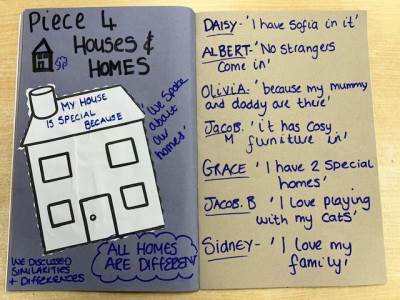 Piece 4
HOUSES &
HOMES
MY HOUSE
IS SPECIAL
BECAUSE
'We spoke
about
our
homes'
WE DISCUSSED
SIMILARITIES
+ DIFFERENCES
ALL HOMES
ARE DIFFERENT
DAISY- 'I have Sofia in it'
ALBERT- 'No strangers
come in'
OLIVIA- 'because my mummy
and daddy are there'
JACOB. M 'it has cosy
furniture in'
GRACE 'I have 2 special
homes'
JACOB. B 'I love playing
with my cats'
Sidney- 'I love my
family'